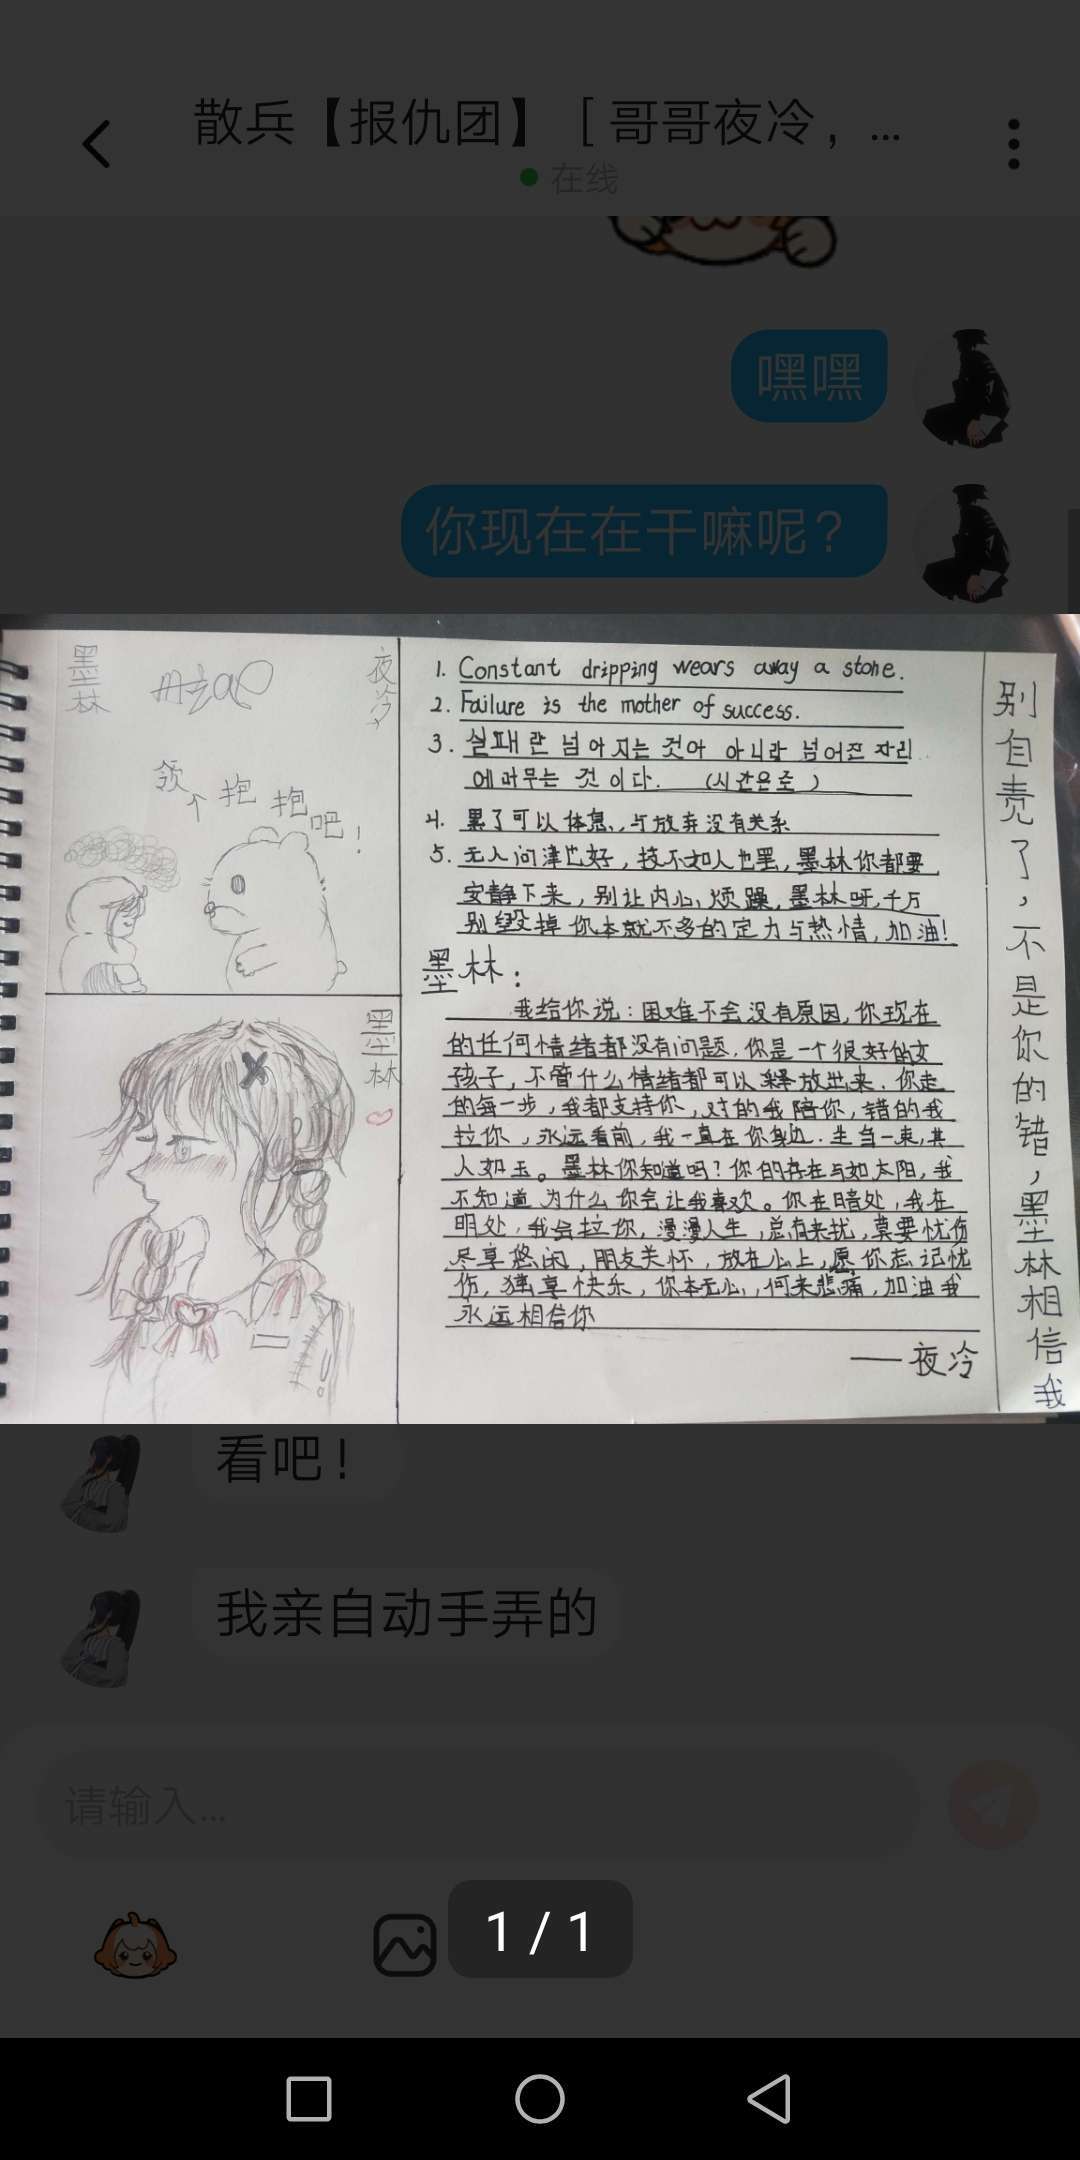 散兵【报仇团】［哥哥夜冷，...
在线
嘿嘿
你现在在干嘛呢？
墨林
夜冷
领个抱抱吧！
墨林
1. Constant dripping wears away a stone.
2. Failure is the mother of success.
3. 실패란 넘어지는 것이 아니라 넘어진 자리
에 머무는 것이다. (시간은준)
4. 累了可以体息，与放弃没有关系
5. 无人问津也好，技不如人也罢，墨林你都要
安静下来，别让内心烦躁，墨林呀，千万
别毁掉你本就不多的定力与热情，加油！
墨林：
我给你说：困难不会没有原因，你现在
的任何情绪都没有问题．你是一个很好的女
孩子，不管什么情绪都可以释放出来．你走
的每一步，我都支持你，对的我陪你，错的我
拉你，永远看前，我一直在你身边．生刍一束，其
人如玉。墨林你知道吗？你的存在与如太阳，我
不知道为什么你会让我喜欢。你在暗处，我在
明处，我会拉你，漫漫人生，总有来扰，莫要忧伤
尽享悠闲，朋友关怀，放在心上，愿你忘记忧
伤，独享快乐，你本无心，何来悲痛，加油我
永远相信你
——夜冷
别自责了，不是你的错，墨林相信我
看吧！
我亲自动手弄的
请输入...
1 / 1